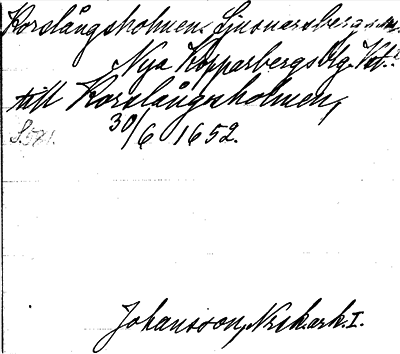 Korslångsholmen. Ljusnarsbergs sn.
Nya Kopparbergs blg. Vst.
till Korslångsholmen,
S. 571. 30/6 1652.
Johansson, Nrsk. ark. I.